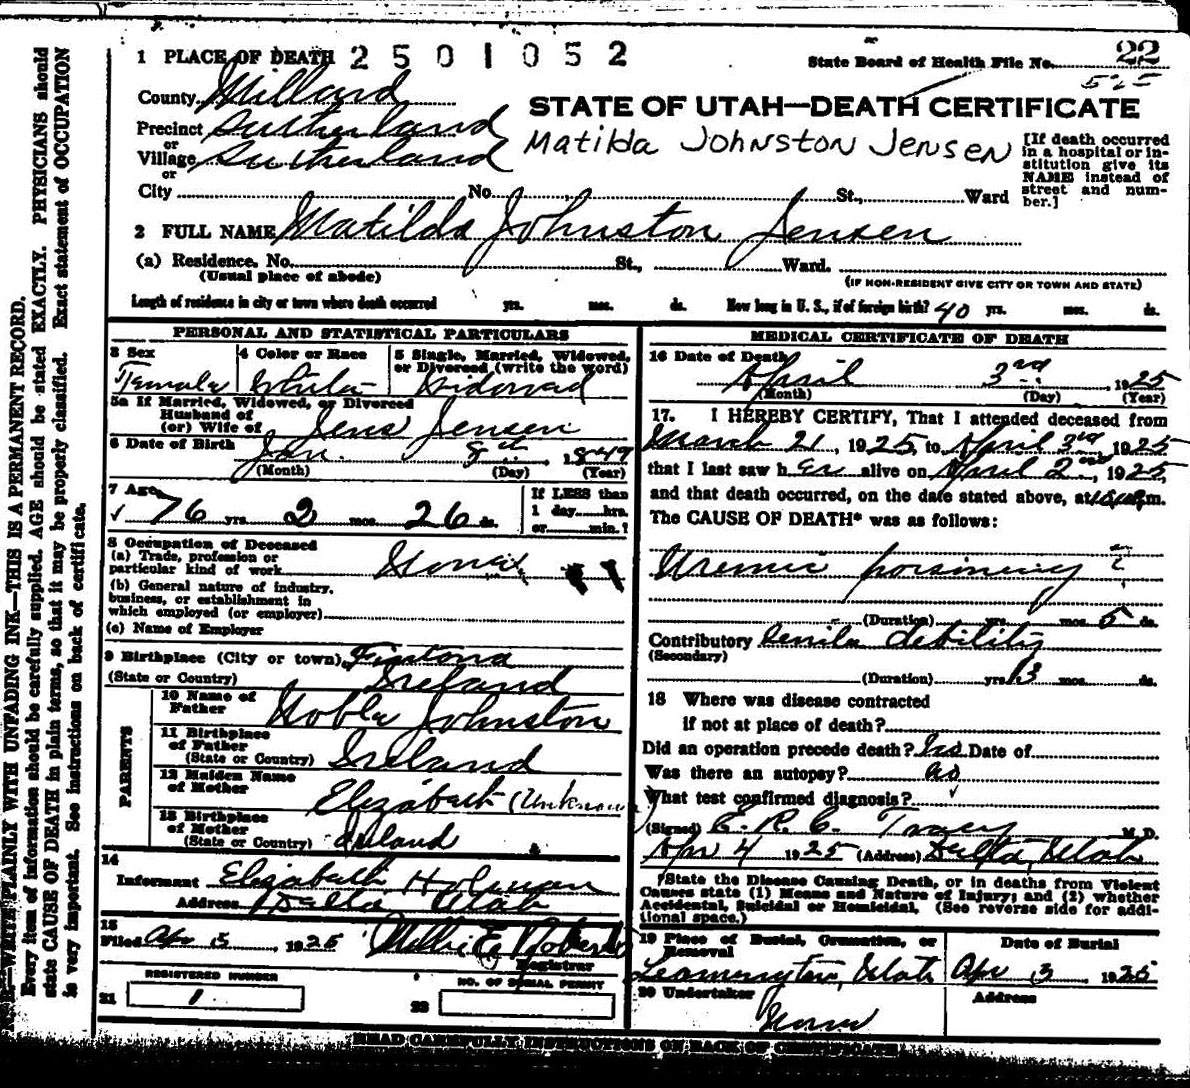 1 PLACE OF DEATH 2501052
State Board of Health File No. 22
525
County Millard
STATE OF UTAH—DEATH CERTIFICATE
Precinct Sutherland
or
Village Sutherland
or
Matilda Johnston Jensen
[If death occurred
in a hospital or in-
stitution give its
NAME instead of
street and num-
ber.]
City No. St., Ward
2 FULL NAME Matilda Johnston Jensen
(a) Residence. No. St., Ward.
(Usual place of abode)
(IF NON-RESIDENT GIVE CITY OR TOWN AND STATE)
Length of residence in city or town where death occurred yrs. mos. ds. How long in U. S., if of foreign birth? 40 yrs. mos. ds.
PERSONAL AND STATISTICAL PARTICULARS
3 Sex
Female
4 Color or Race
White
5 Single, Married, Widowed,
or Divorced (write the word)
Widowed
5a If Married, Widowed, or Divorced
Husband of
(or) Wife of Jens Jensen
6 Date of Birth Jan. 8th, 1849
(Month) (Day) (Year)
7 Age
76 yrs. 2 mos. 26 ds.
If LESS than
1 day......hrs.
or......min.?
8 Occupation of Deceased
(a) Trade, profession or
particular kind of work
(b) General nature of industry,
business, or establishment in
which employed (or employer)
(c) Name of Employer
9 Birthplace (City or town) Fintona
(State or Country) Ireland
PARENTS
10 Name of
Father Noble Johnston
11 Birthplace
of Father
(State or Country) Ireland
12 Maiden Name
of Mother Elizabeth (Unknown)
13 Birthplace
of Mother
(State or Country) Ireland
14
Informant Elizabeth Holman
Address Delta Utah
15
Filed Apr 5, 1925 Millie E Roberts
Registrar
REGISTERED NUMBER
21 1
NO. OF BURIAL PERMIT
22
MEDICAL CERTIFICATE OF DEATH
16 Date of Death
April 3rd, 1925
(Month) (Day) (Year)
17. I HEREBY CERTIFY, That I attended deceased from
March 21, 1925, to April 3rd, 1925
that I last saw her alive on April 2nd, 1925,
and that death occurred, on the date stated above, at m.
The CAUSE OF DEATH* was as follows:
Uremic poisoning
(Duration) yrs. mos. 5 ds.
Contributory Senile debility
(Secondary)
(Duration) yrs. 3 mos. ds.
18 Where was disease contracted
if not at place of death?
Did an operation precede death? No Date of
Was there an autopsy? no
What test confirmed diagnosis?
(Signed) E. R. C. Tracy M. D.
Apr 4 1925 (Address) Delta, Utah
*State the Disease Causing Death, or in deaths from Violent
Causes state (1) Means and Nature of Injury; and (2) whether
Accidental, Suicidal or Homicidal, (See reverse side for addi-
tional space.)
19 Place of Burial, Cremation, or
Removal
Leamington, Utah
Date of Burial
Apr 3 1925
20 Undertaker
None
Address
READ CAREFULLY INSTRUCTIONS ON BACK OF CERTIFICATE
N. B.—WRITE PLAINLY WITH UNFADING INK—THIS IS A PERMANENT RECORD.
Every item of information should be carefully supplied. AGE should be stated EXACTLY. PHYSICIANS should
state CAUSE OF DEATH in plain terms, so that it may be properly classified. Exact statement of OCCUPATION
is very important. See instructions on back of certificate.